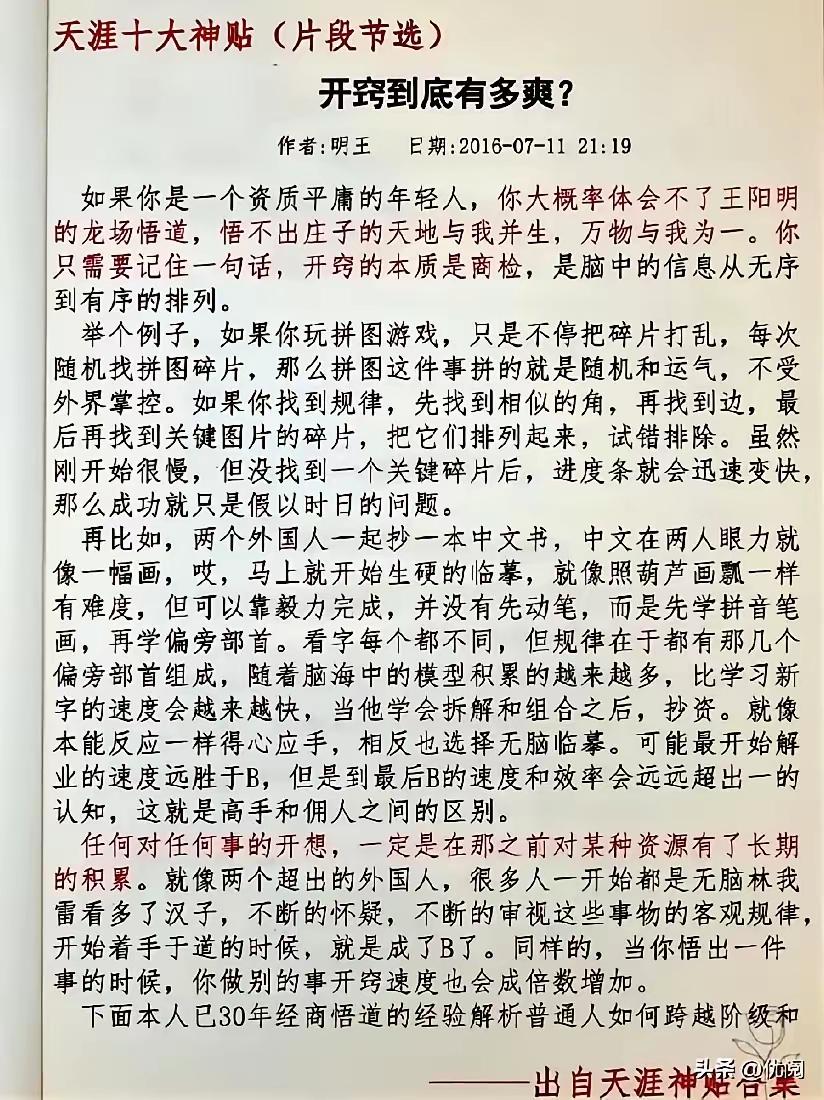 天涯十大神贴（片段节选）
开窍到底有多爽？
作者:明王 日期:2016-07-11 21:19
如果你是一个资质平庸的年轻人，你大概率体会不了王阳明
的龙场悟道，悟不出庄子的天地与我并生，万物与我为一。你
只需要记住一句话，开窍的本质是商检，是脑中的信息从无序
到有序的排列。
举个例子，如果你玩拼图游戏，只是不停把碎片打乱，每次
随机找拼图碎片，那么拼图这件事拼的就是随机和运气，不受
外界掌控。如果你找到规律，先找到相似的角，再找到边，最
后再找到关键图片的碎片，把它们排列起来，试错排除。虽然
刚开始很慢，但没找到一个关键碎片后，进度条就会迅速变快，
那么成功就只是假以时日的问题。
再比如，两个外国人一起抄一本中文书，中文在两人眼力就
像一幅画，哎，马上就开始生硬的临摹，就像照葫芦画瓢一样
有难度，但可以靠毅力完成，并没有先动笔，而是先学拼音笔
画，再学偏旁部首。看字每个都不同，但规律在于都有那几个
偏旁部首组成，随着脑海中的模型积累的越来越多，比学习新
字的速度会越来越快，当他学会拆解和组合之后，抄资。就像
本能反应一样得心应手，相反也选择无脑临摹。可能最开始解
业的速度远胜于B，但是到最后B的速度和效率会远远超出一的
认知，这就是高手和佣人之间的区别。
任何对任何事的开想，一定是在那之前对某种资源有了长期
的积累。就像两个超出的外国人，很多人一开始都是无脑林我
雷看多了汉子，不断的怀疑，不断的审视这些事物的客观规律，
开始着手于道的时候，就是成了B了。同样的，当你悟出一件
事的时候，你做别的事开窍速度也会成倍数增加。
下面本人已30年经商悟道的经验解析普通人如何跨越阶级和
———出自天涯神贴合集
头条 @优阅